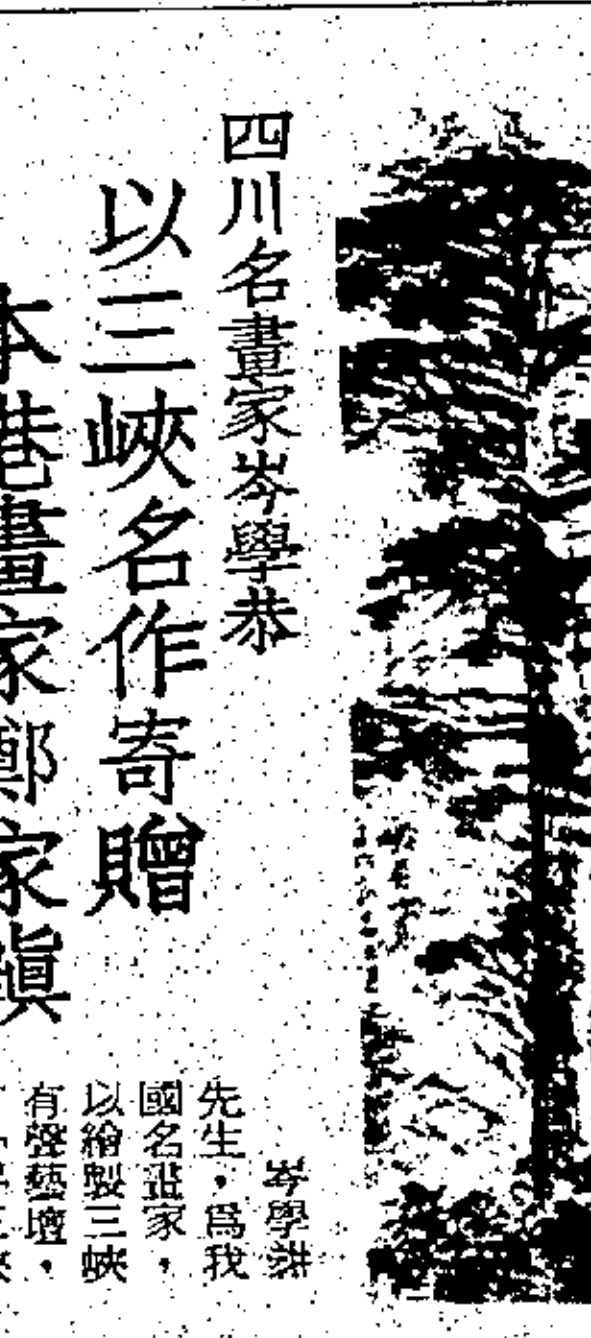 四川名畫家岑學恭
以三峽名作寄贈
本港畫家鄭家鎮
岑學恭
先生，爲我
國名畫家，
以繪製三峽
有聲藝壇，